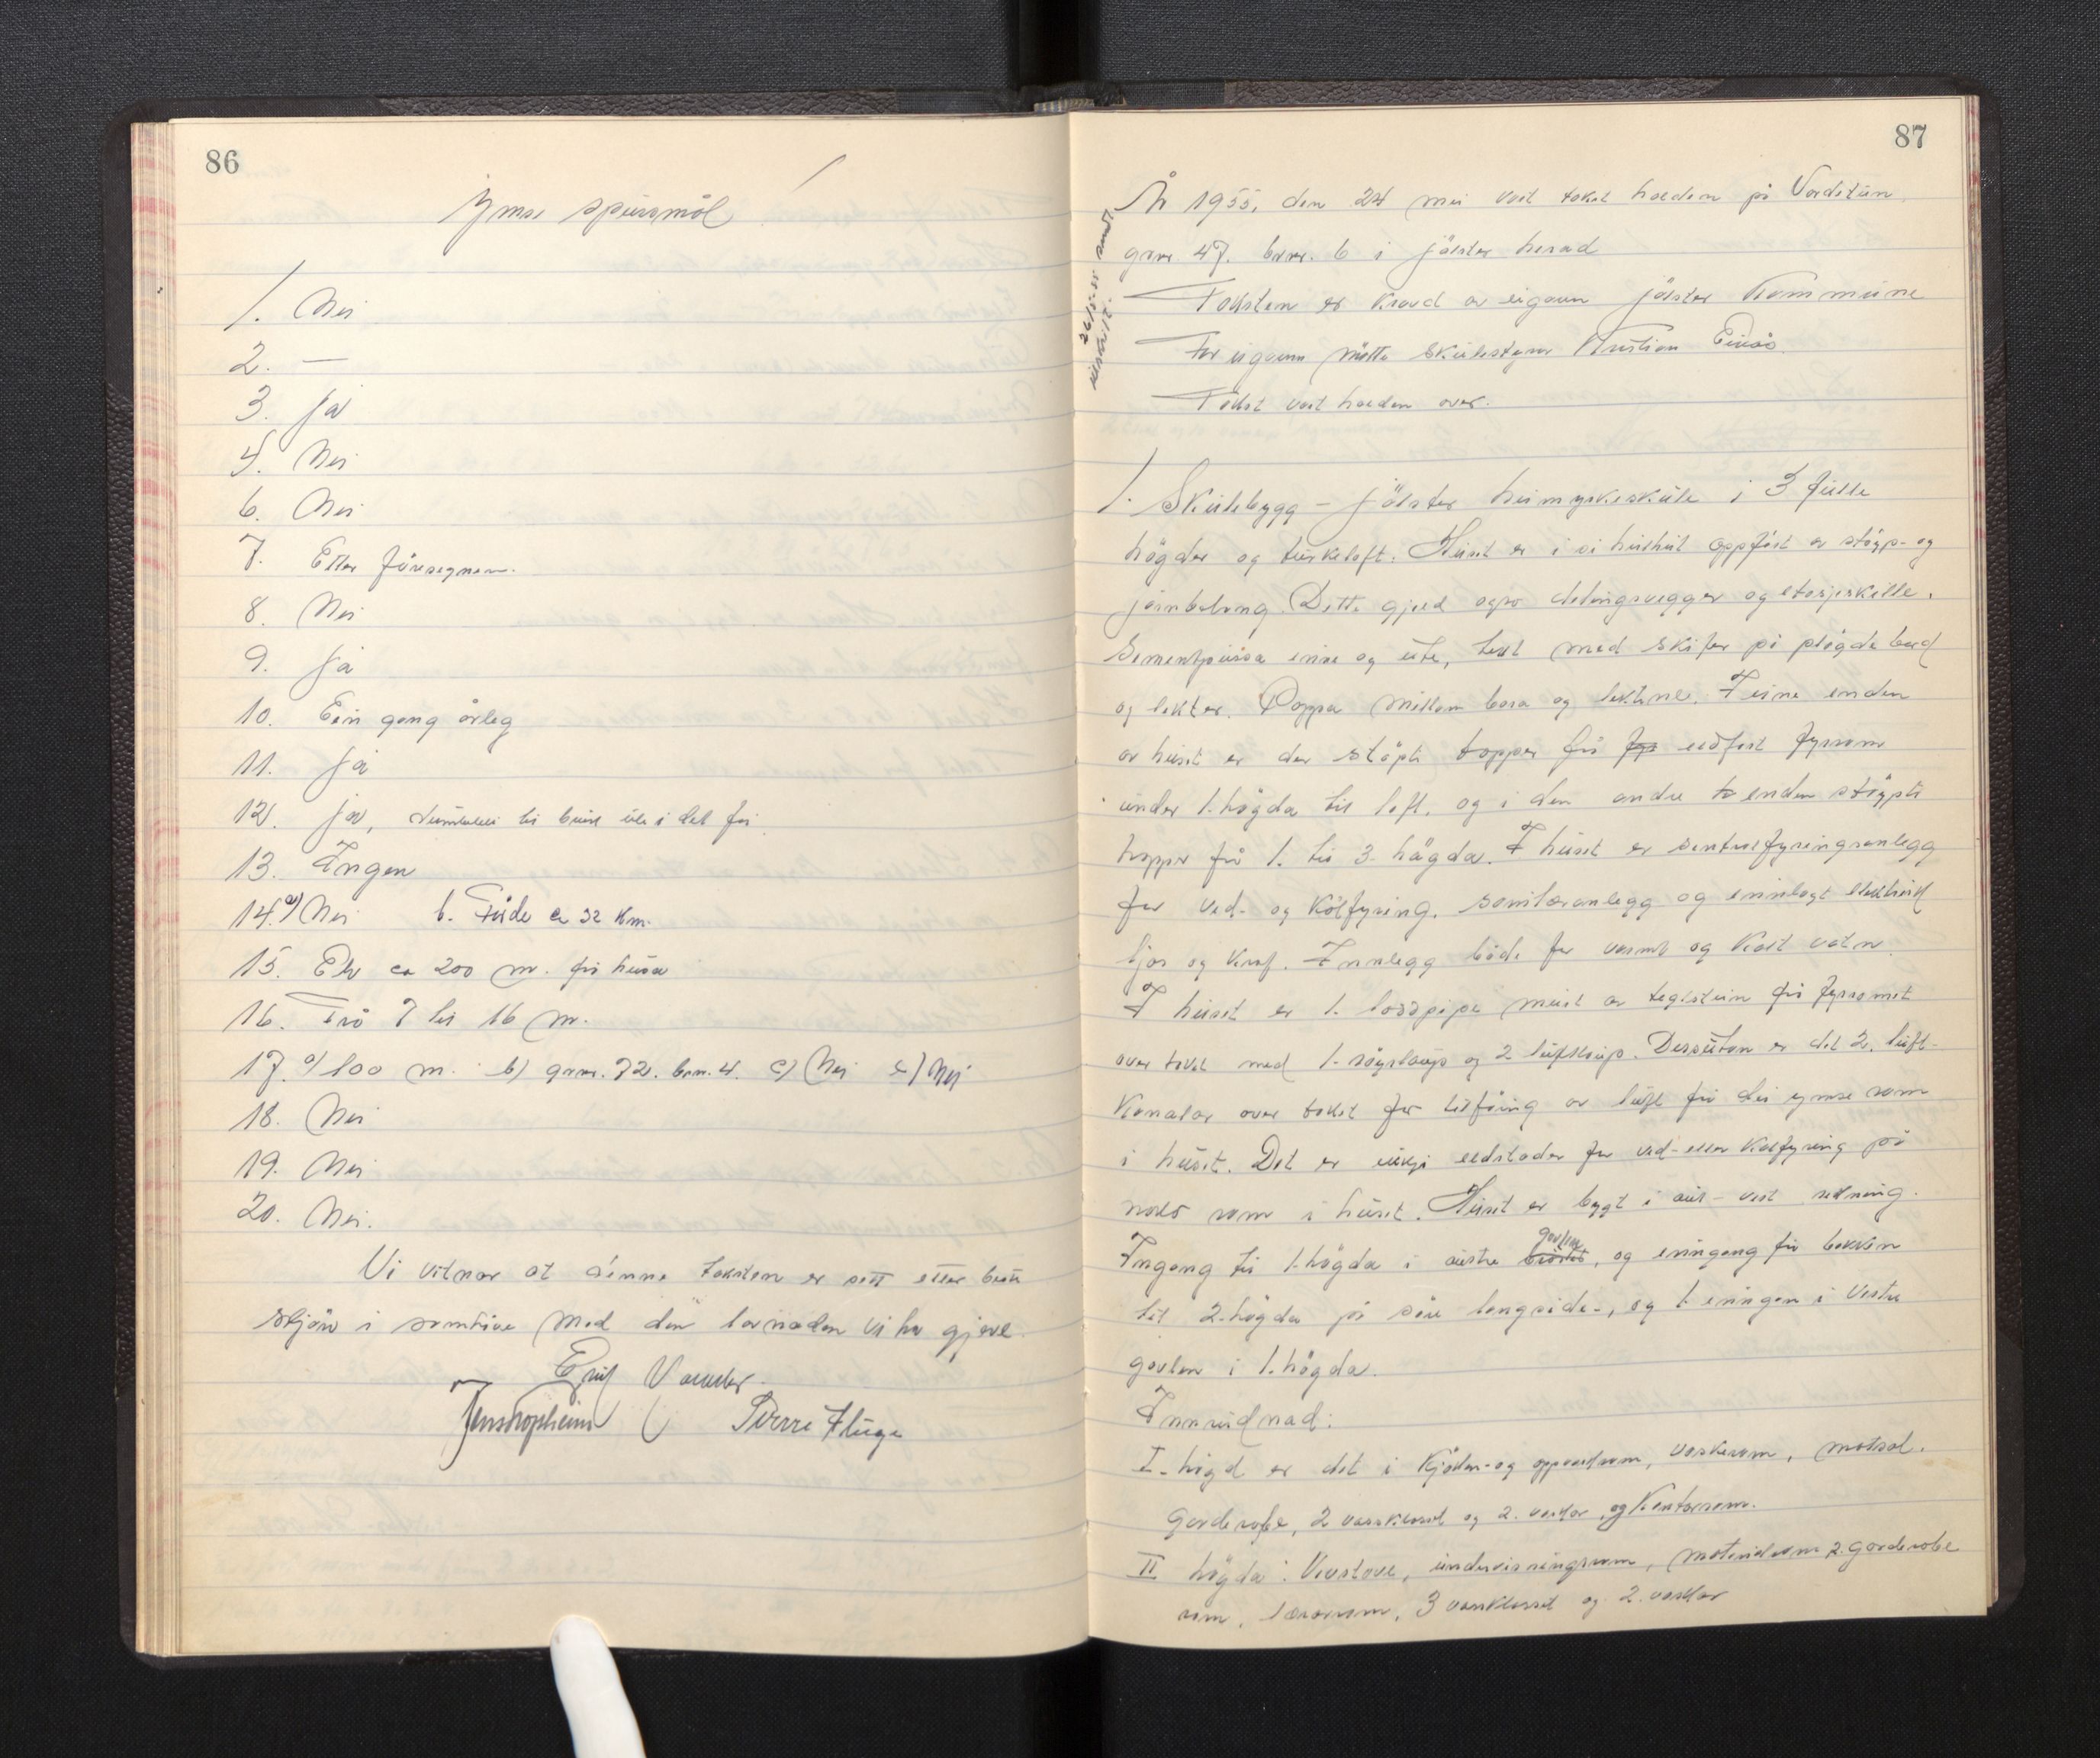 86
Ymse spursmål
1. Nei
2. —
3. Ja
4. Nei
6. Nei
7. Etter føresegnene.
8. Nei
9. Ja
10. Ein gong årleg
11. Ja
12. Ja, til bruk ute i det fri
13. Ingen
14. a) Nei b. Førde ca 32 km.
15. Elv ca 200 m. frå husa
16. Frå 7 til 16 m.
17. a) 100 m. b) gnr. 72. bnr. 4. c) Nei d) Nei
18. Nei
19. Nei
20. Nei.
Vi vitnar at denne taksten er sett etter beste
skjøn i samhøve med den lovnaden vi har gjeve.
Pierre Fluge
87
År 1955, den 24 mai vart takst halden på Vardetun
gnr. 47. bnr. 6 i Jölster herad
Taksten er kravd av eigaren Jölster Kommune
For eigaren møtte skulestyrar Kristian
Takst vart halden over.
1. Skulebygg – Jölster heimyrkeskule i 3 fulle
högder og turkeloft. Huset er i si heilheit oppført av støyp- og
jarnbetong. Dette gjeld også delingsvegger og etasjeskille.
Sementpussa inne og ute, tekt med skifer på pløgde bord
og lekter. Papp millom bora og lektene. I eine enden
av huset er der støpte trapper frå fyr eldfast fyrrom
under 1. högda til loft, og i den andre tr enden støypte
trapper frå 1. til 3. högda. I huset er sentralfyringsanlegg
for ved- og kolfyring, sanitæranlegg og innlagt elektrisk
ljos og kraf. Innlegg både for varmt og kalt vatn.
I huset er 1. pipe mura av teglstein frå fyrromet
over taket med 1. röyklaup og 2 luftlaup. Dessutan er det 2. luft-
kanalar over taket for tilføring av luft frå dei ymse rom
i huset. Det er ikkje eldstader for ved- eller kolfyring på
noko rom i huset. Huset er bygt i aust – vest retning.
Ingang til 1. högda i austre gavlen, og inngang frå bakken
til 2. högda på søre langside, og 1 inngang i vestre
gavlen i 1. högda.
Innreidnad:
I. högd er det i kjøken- og oppvaskrom, vaskerom, matsal.
Garderobe, 2 vassklosett og 2. vaskar, og Kontorrom.
II högda: Vevstove, undervisningsrom, materialrom 2. garderobe
rom, lærarrom, 3 vassklosett og 2. vaskar